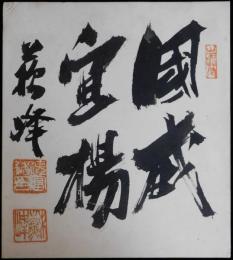 國威
宣揚
蘇峰